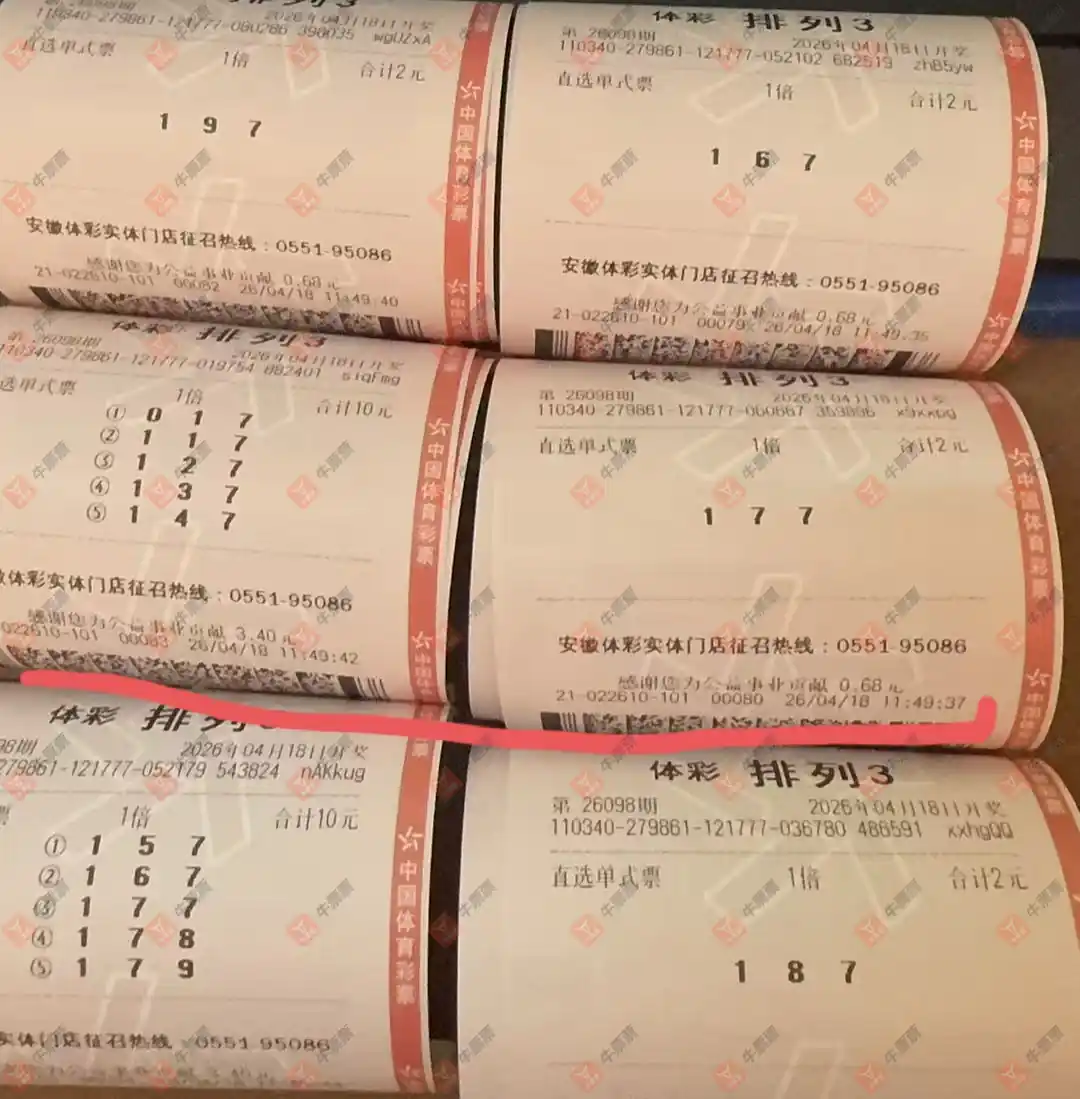 2026年04月18日开奖
110340-279861-121777-080286 390035 wgUZxA
直选单式票 1倍 合计2元
1 9 7
安徽体彩实体门店征召热线：0551-95086
感谢您为公益事业贡献 0.68元
21-022610-101 00082 26/04/18 11:49:40
中国体育彩票
体彩 排列3
第 26098期 2026年04月18日开奖
110340-279861-121777-052102 682519 zhB5yw
直选单式票 1倍 合计2元
1 6 7
安徽体彩实体门店征召热线：0551-95086
感谢您为公益事业贡献 0.68元
21-022610-101 00079 26/04/18 11:49:35
中国体育彩票
体彩 排列3
第 26098期 2026年04月18日开奖
110340-279861-121777-019754 882401 siqFmg
选单式票 1倍 合计10元
① 0 1 7
② 1 1 7
③ 1 2 7
④ 1 3 7
⑤ 1 4 7
体彩实体门店征召热线：0551-95086
感谢您为公益事业贡献 3.40元
022610-101 00083 26/04/18 11:49:42
中国体育彩票
体彩 排列3
第 26098期 2026年04月18日开奖
110340-279861-121777-060667 359896
直选单式票 1倍 合计2元
1 7 7
安徽体彩实体门店征召热线：0551-95086
感谢您为公益事业贡献 0.68元
21-022610-101 00080 26/04/18 11:49:37
中国体育彩票
体彩 排列3
98期 2026年04月18日开奖
279861-121777-052179 543824 nAKkug
票 1倍 合计10元
① 1 5 7
② 1 6 7
③ 1 7 7
④ 1 7 8
⑤ 1 7 9
实体门店征召热线：0551-95086
中国体育彩票
体彩 排列3
第 26098期 2026年04月18日开奖
110340-279861-121777-036780 486591 xxhgQQ
直选单式票 1倍 合计2元
1 8 7
牛票票